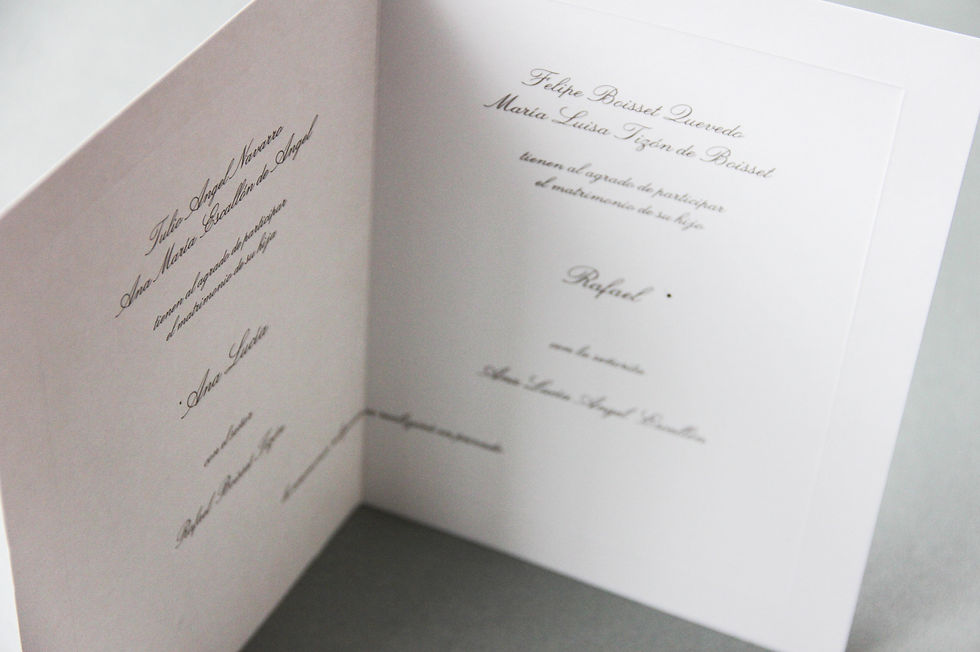 Tulio Angel Navarro
Ana María Escallón de Angel
tienen al agrado de participar
el matrimonio de su hija
Ana Lucía
con el señor
Rafael Boisset Tizón
Felipe Boisset Quevedo
María Luisa Tizón de Boisset
tienen al agrado de participar
el matrimonio de su hijo
Rafael
con la señorita
Ana Lucía Angel Escallón